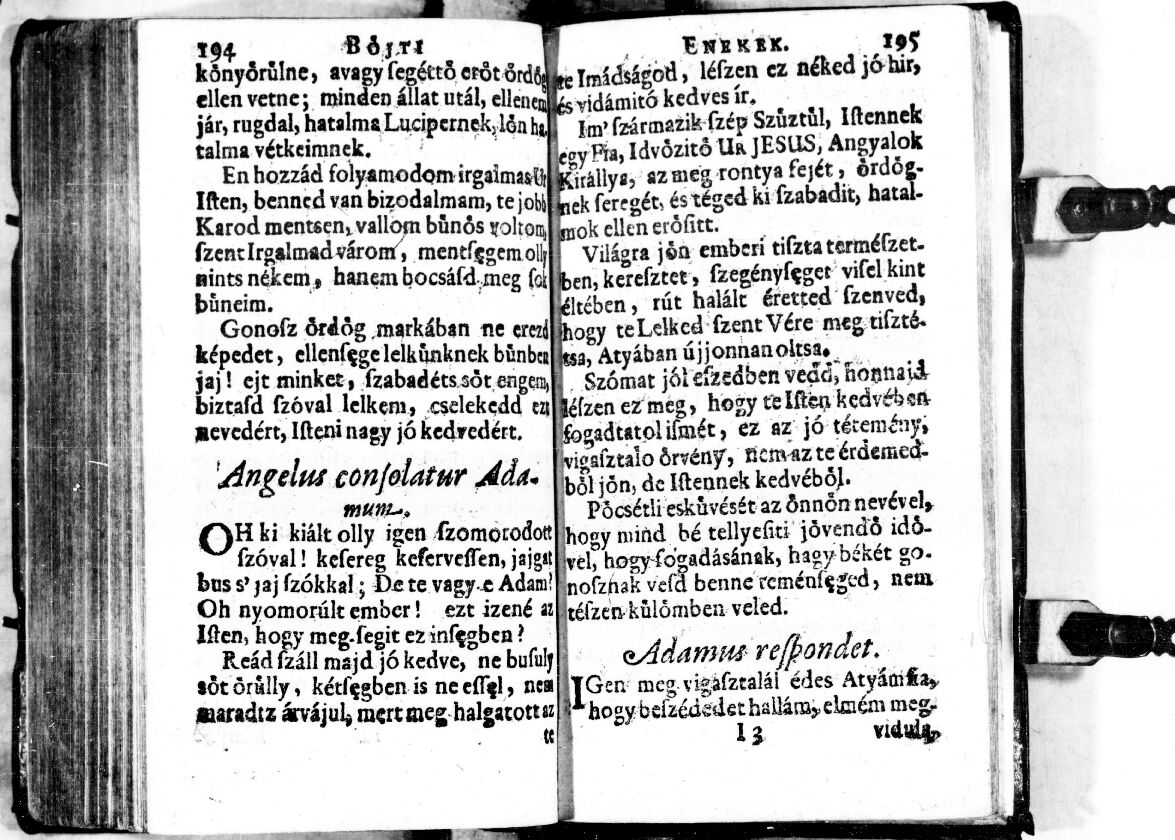 194 BŏJTI
kŏnyŏrŭlne, avagy ſegéttŏ erŏt ŏrdŏg
ellen vetne; minden állat utál, ellenem
jár, rugdal, hatalma Lucipernek, lŏn ha-
talma vétkeimnek.
En hozzád folyamodom irgalmas Ur
Iſten, benned van bizodalmam, te jobb
Karod mentsen, vallom bŭnŏs voltom,
ſzent Irgalmad várom, mentſęgem olly
nints nékem, hanem bocsáſd meg ſok
bŭneim.
Gonoſz ŏrdŏg markában ne erezd
képedet, ellenſęge lelkŭnknek bŭnben
jaj! ejt minket, ſzabadéts sŏt engem,
biztaſd ſzóval lelkem, cselekedd ezt
nevedért, Iſteni nagy jó kedvedért.
Angelus conſolatur Ada-
mum.
OH ki kiált olly igen ſzomorodott
ſzóval! keſereg keſerveſſen, jajgat
bus s' jaj ſzókkal; De te vagy-e Adam?
Oh nyomorúlt ember! ezt izené az
Iſten, hogy meg ſegit ez inſęgben?
Reád ſzáll majd jó kedve, ne buſuly
sŏt ŏrŭlly, kétſęgben is ne eſſęl, nem
maradtz árvájul, mert meg halgatott az
te
ENEKEK. 195
te Imádságod, léſzen ez néked jó hir,
és vidámitó kedves ír.
Im' ſzármazik ſzép Szŭztŭl, Iſtennek
egy Fia, Idvŏzitŏ UR JESUS, Angyalok
Királlya, az meg rontya fejét, ŏrdŏg-
nek ſeregét, és téged ki ſzabadit, hatal-
mok ellen erŏſitt.
Világra jŏn emberi tiſzta termeſzet-
ben, kereſztet, ſzegényſęget viſel kint
éltében, rút halált éretted ſzenved,
hogy te Lelked ſzent Vére meg tiſzté-
tsa, Atyában újjonnan oltsa.
Szómat jól eſzedben vedd, honnajd
léſzen ez meg, hogy te Iſten kedvében
fogadtatol iſmét, ez az jó tétemény,
vigaſztalo ŏrvény, nem az te érdemed-
bŏl jŏn, de Iſtennek kedvébŏl.
Pŏcsétli eskŭvését az ŏnnŏn nevével,
hogy mind bé tellyeſiti jŏvendŏ idŏ-
vel, hogy fogadásának, hagy békét go-
noſznak veſd benne reménſęged, nem
téſzen kŭlŏmben veled.
Adamus reſpondet.
IGen meg vigaſztalál édes Atyámfia,
hogy beſzédedet hallám, elmém meg-
I 3 vidula,